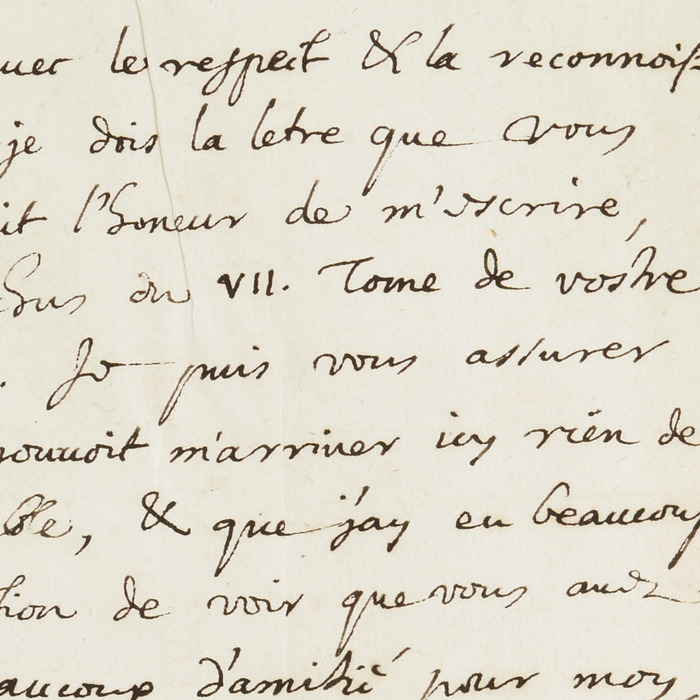 avec le respect & la reconnoiss
je dois la letre que vous
it l'honeur de m'escrire,
du VII. Tome de vostre
. Je puis vous assurer
pouuoit m'arriuer icy rien de
ble, & que j'ay eu beaucoup
tion de voir que vous auez
aucoup d'amitié pour moy